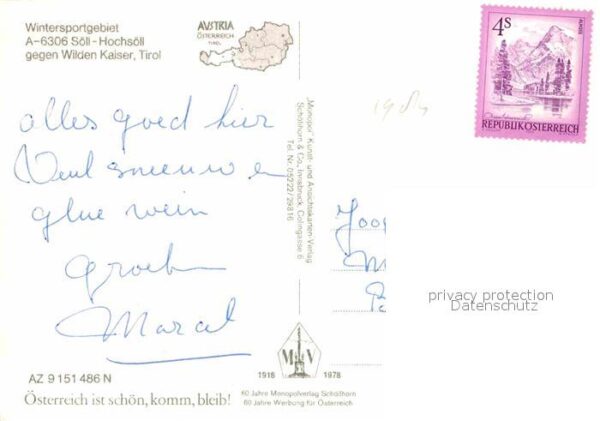 Wintersportgebiet
A-6306 Söll-Hochsöll
gegen Wilden Kaiser, Tirol
AUSTRIA
ÖSTERREICH
TIROL
4S
ALMSEE
REPUBLIK ÖSTERREICH
1984
alles goed hier
Veul sneeuw en
glue wein
Groeten
Marcel
"Monopol" Kunst- und Ansichtskarten-Verlag
Schöllhorn & Co., Innsbruck, Colingasse 6
Tel. Nr. 05222/29816
Joo
M
privacy protection
Datenschutz
M V
1918 1978
AZ 9 151 486 N
Österreich ist schön, komm, bleib!
60 Jahre Monopolverlag Schöllhorn
60 Jahre Werbung für Österreich